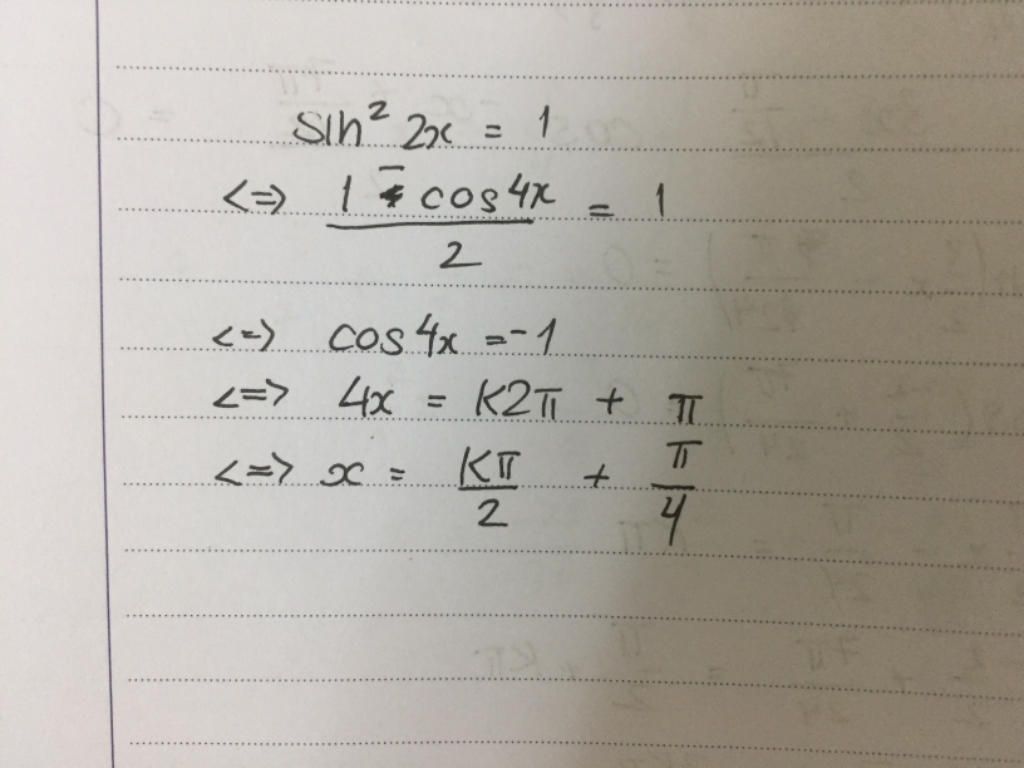 sin² 2x = 1
<=> (1 - cos 4x)/2 = 1
<=> cos 4x = -1
<=> 4x = K2π + π
<=> x = Kπ/2 + π/4